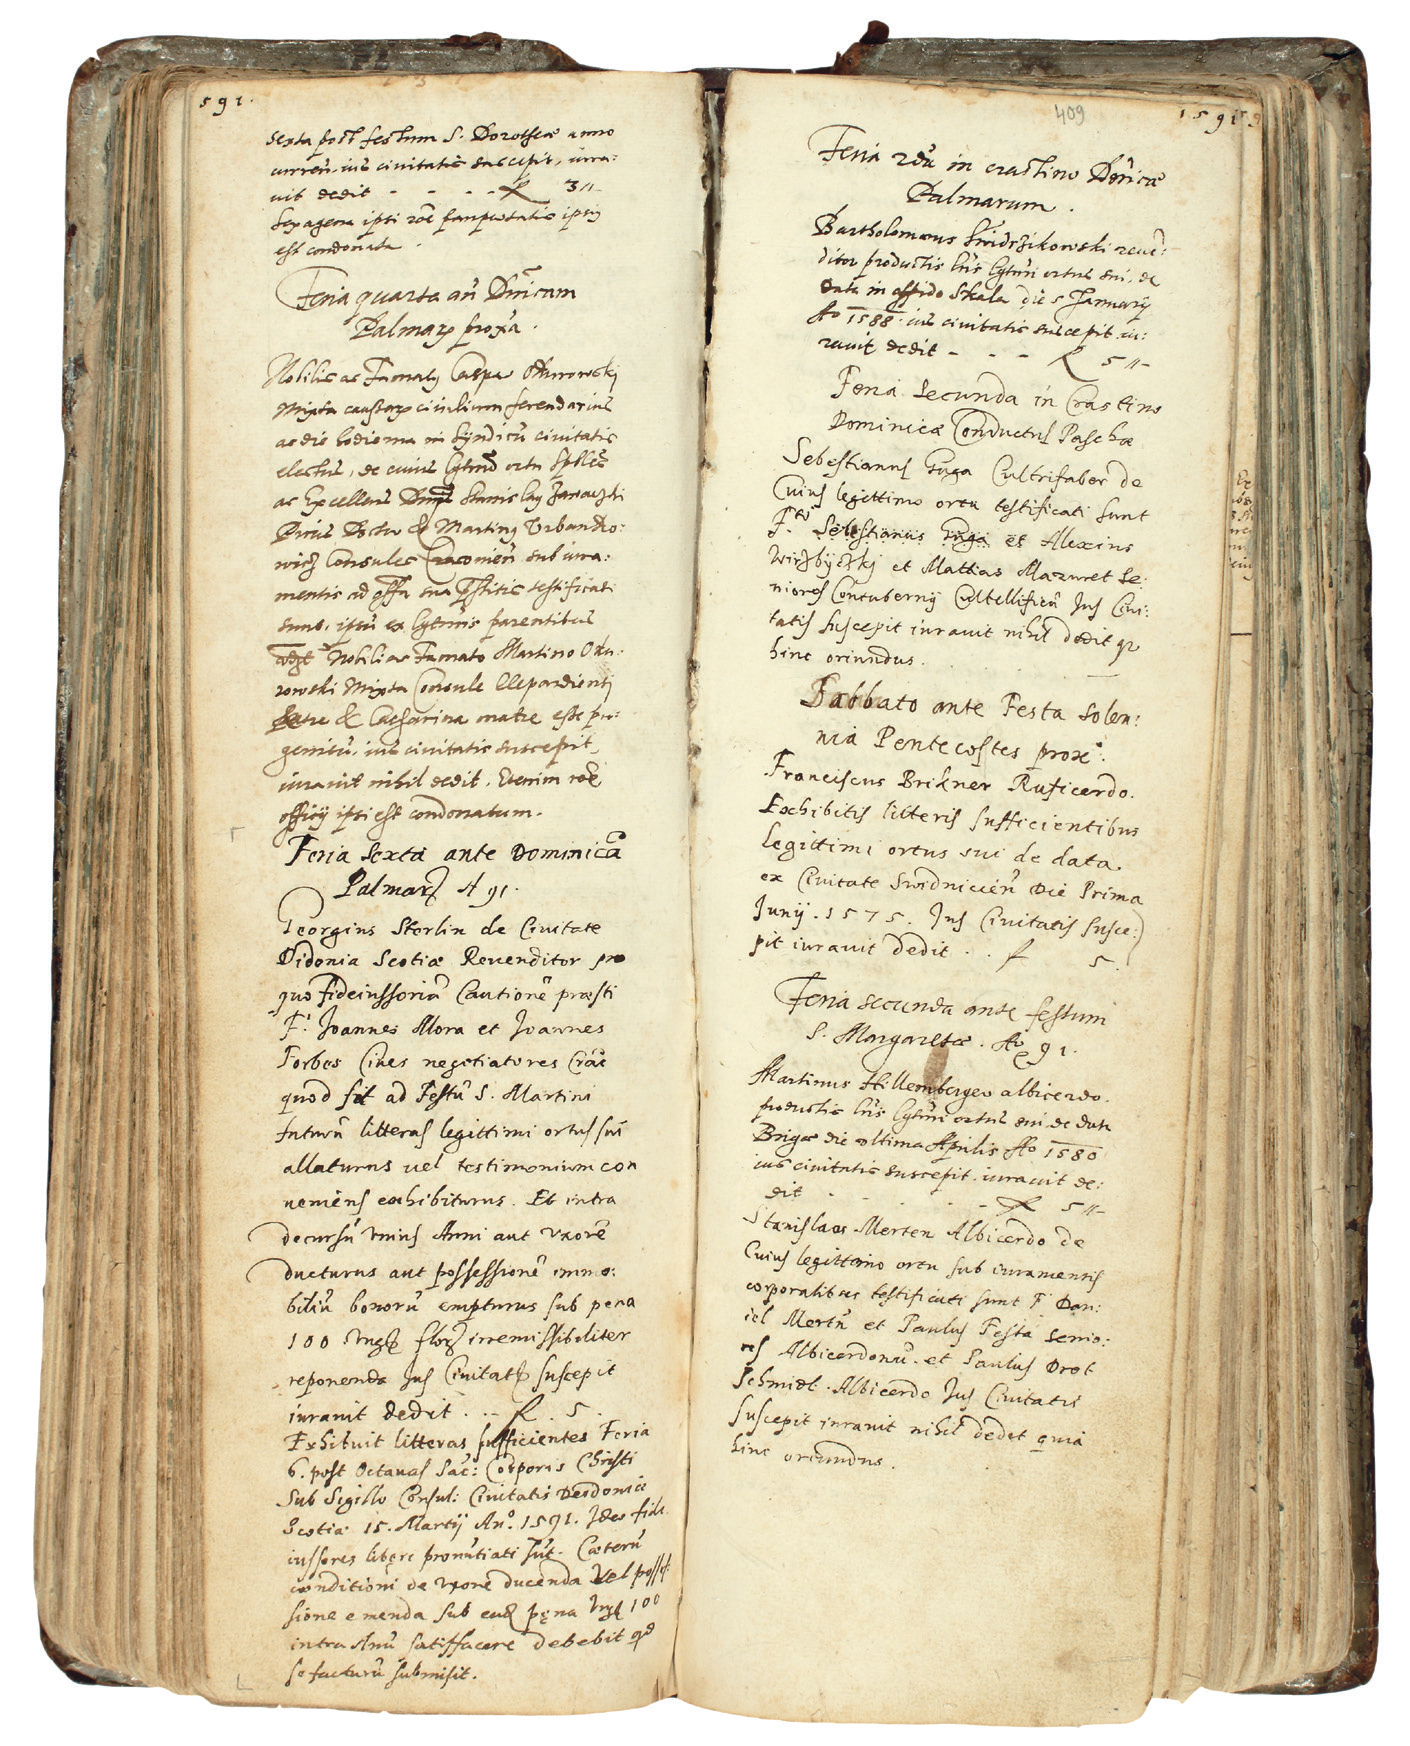 591.
sexta post festum S. Dorotheæ anno
curren. ius civitatis suscepit, iura:
vit dedit - - - - f 3 11-
Sexagena ipsi rõe paupertatis ipsiq
est condonata.
Feria quarta añ Dñicam
Palmarꝝ proxa.
Nobilis ac Famatq Caspar Okurowskj
Mixta causarꝝ civilium ferendarius
ac die hodierna in Syndicũ civitatis
electus, de cuius lgtmo ortu Spbles
ac Excellens Dnus Stanislaq Zawaczki
Phiæ Doctor & Martinq Urbanko:
wicz Consules Cracovien sub iura:
mentis ad offa sua pstitis testificati
sunt, ipsũ ex lgtmis parentibus
Nobili ac Famato Martino Oku:
rowski Mixta Consule Clepardiensi
patre & Catharina matre esse pro:
genitũ, ius civitatis suscepit,
iuravit nihil dedit. Etenim rõe
officij ipsi est condonatum.
Feria Sexta ante Dominicã
Palmarꝝ A 91.
Georgius Sterlin de Civitate
Didonia Scotiæ Revenditor pro
quo fideiussoriã Cautionẽ præsti
F: Joannes Mora et Joannes
Forbes Cives negotiatores Crãc
quod sit ad Festũ S. Martini
futurũ litteras legittimi ortus sui
allaturus vel testimonium con
veniens exhibiturus. Et intra
decursũ vnius Anni aut vxorẽ
ducturus aut possessionẽ immo:
biliũ bonorũ empturus sub pena
100 Vngꝝ florꝝ irremissibiliter
reponenda Jus Civitatꝭ suscepit
iuravit dedit . - - f . 5 .
Exhibuit litteras sufficientes Feria
6. post Octavas Sac: Corporis Christi
Sub Sigillo Consul: Civitatis Deidoniæ
Scotiæ 15. Martij Anº. 1591. Ideo fide
iussores liberi pronũtiati sũt. Cæterũ
conditioni de vxore ducenda vel posses
sione emenda sub eadẽ pęna Vngꝝ 100
intra Anũ satisfacere debebit qd
se facturũ submisit.
409
1591
Feria 2da in crastino Dñicæ
Palmarum.
Bartholomæus Swidrzikowski reven:
ditor productis lris lgtmi ortus sui, de
data in oppido Skala die 5 January
Aº 1588. ius civitatis suscepit iu:
ravit dedit - - - f 5 11-
Feria Secunda in Crastino
Dominicæ Conductus Paschæ
Sebestianus Guga Cultrifaber de
Cuius legittimo ortu testificati sunt
F. Sebestianus Guga et Alexius
Wirzbyczkj et Mattias Mazuret Se:
niores Contubernij Cultellificũ Jus Civi:
tatis suscepit iuravit nihil dedit qr
hinc oriundus.
Sabbato ante Festa solen:
nia Pentecostes proxe.
Franciscus Brikner Ruficerdo.
Exhibitis litteris sufficientibus
legittimi ortus sui de data
ex Civitate Swidnicien Die Prima
Junij. 1575. Jus Civitatis susce:
pit iuravit dedit . . f 5.
Feria secunda ante festum
S. Margaretæ. Aº 91.
Martinus Hillemberger albicerdo.
productis lris lgtmi ortus sui. de data
Brigæ die ultima Aprilis Aº 1580
ius civitatis suscepit. iuravit de:
dit - - - - f 5 11-
Stanislaus Merten Albicerdo de
Cuius legittimo ortu sub iuramentis
corporalibus testificati sunt F Dan:
iel Mertñ et Paulus Festa Senio:
res Albicerdonũ. et Paulus Drot
Schmidt. Albicerdo Jus Civitatis
suscepit iuravit nihil dedit quia
hinc oriundus.